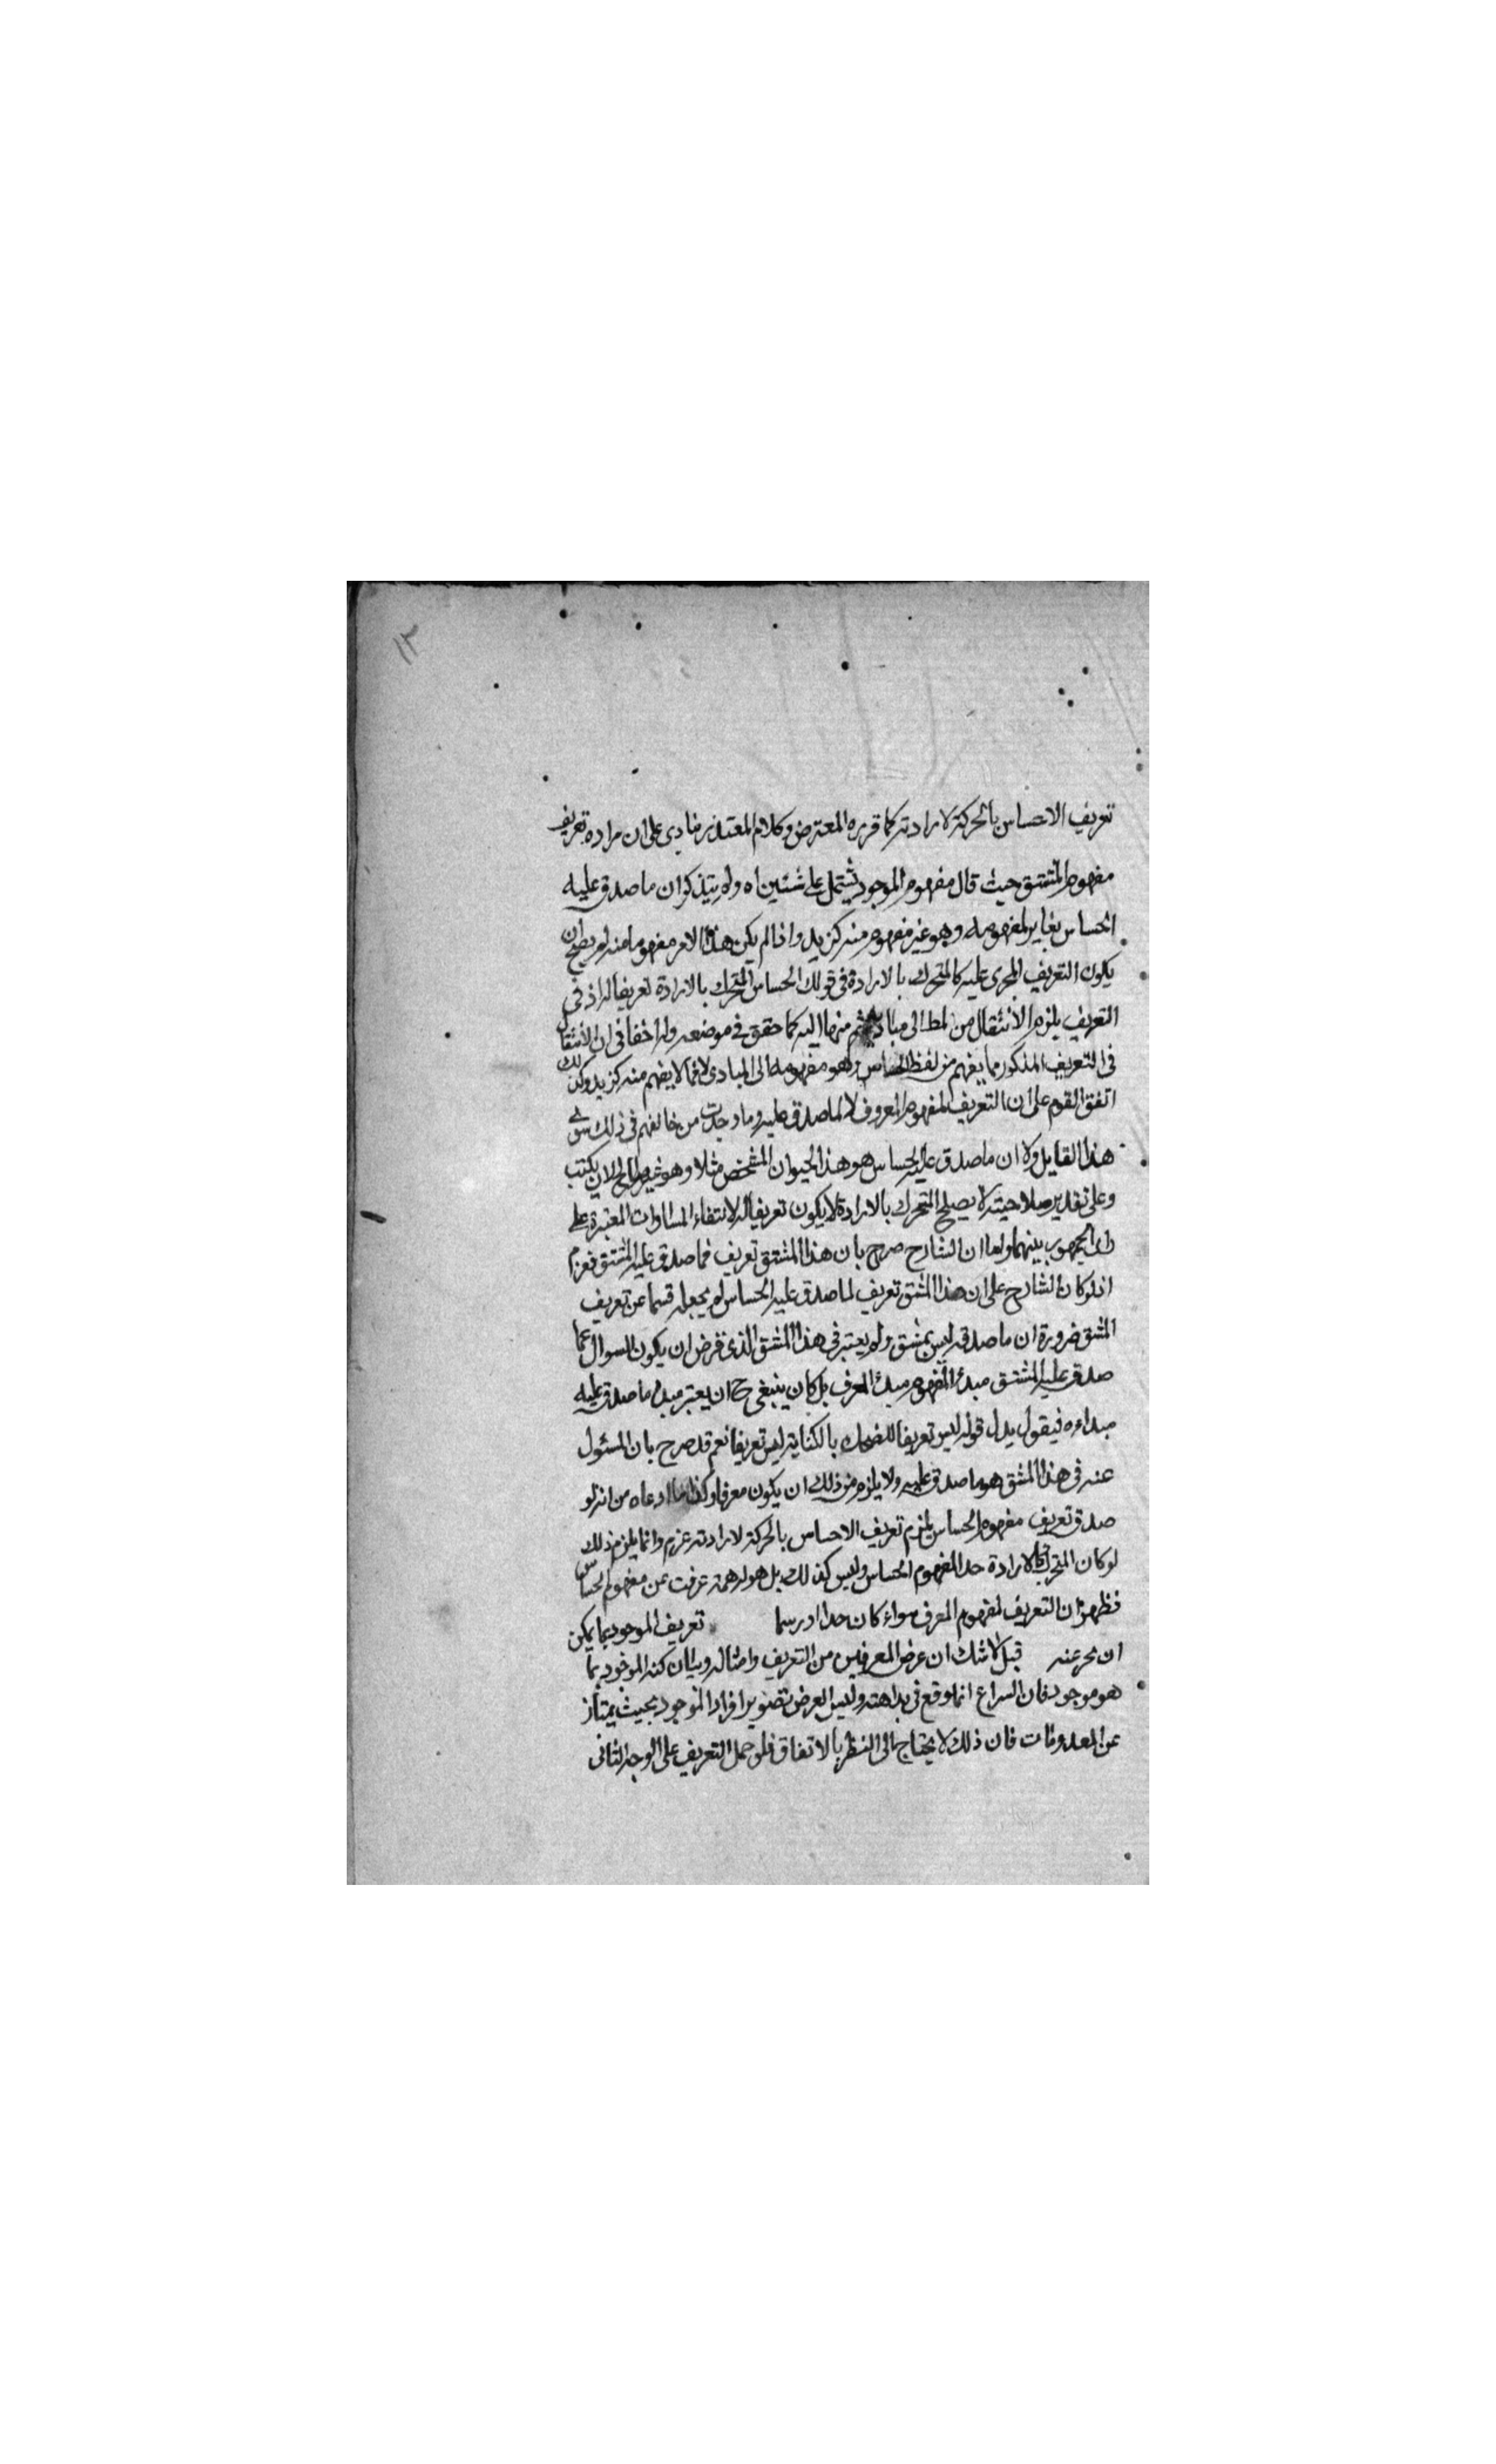 ١٢
تعريف الاحساس بالحركة الارادية كما قرره المعترض وكلام المعتذر ينادى على ان مراده تعريف
مفهوم المشتق حيث قال مفهوم الموجود يشتمل على شيئين اه ولم يتذكر ان ما صدق عليه
الحساس يغاير لمفهومه وهو غير مفهوم منه كزيد واذا لم يكن هذا الامر مفهوما منه لم يصح ان
يكون التعريف المجرى عليه كالمتحرك بالارادة فى قولك الحساس المتحرك بالارادة تعريفا له اذ فى
التعريف يلزم الانتقال من المط الى مباديه ثم منها اليه كما حقق فى موضعه ولا خفا فى ان الانتقال
فى التعريف المذكور مما يفهم من لفظ الحساس وهو مفهومه الى المبادى لا مما لا يفهم منه كزيد وكذلك
اتفق القوم على ان التعريف لمفهوم المعروف لا لما صدق عليه وما وجدت من خالفهم فى ذلك سوى
هذا القايل ولا ان ما صدق عليه الحساس هو هذا الحيوان المشخص مثلا وهو غير صالح لان يكتسب
وعلى تقدير صلاحيته لا يصلح المتحرك بالارادة لا يكون تعريفا له لانتفاء المساوات المعتبرة على
راى الجمهور بينهما واما ان الشارح صرح بان هذا المشتق تعريف لما صدق عليه المشتق فغرم
اذ لو كان الشارح على ان هذا المشتق تعريف لما صدق عليه الحساس لم يجعله قسما عن تعريف
المشتق ضرورة ان ما صدقه ليس بمشتق ولم يعتبر فى هذا المشتق الذى فرض ان يكون السوال عما
صدق عليه المشتق مبدأ المفهوم مبدأ المعرف بل كان ينبغى ح ان يعتبر مبدأ ما صدق عليه
مبداءه فيقول بدل قوله ليس تعريفا للضحاك بالكتابة ليس تعريفا نعم قد صرح بان المسئول
عنه فى هذا المشتق هو ما صدق عليه ولا يلزم من ذلك ان يكون معرفا وكذا ما ادعاه من انه لو
صدق تعريف مفهوم الحساس يلزم تعريف الاحساس بالحركة الارادية غرم وانما يلزم ذلك
لو كان المتحرك بالارادة حدا لمفهوم الحساس وليس كذلك بل هو عن مفهوم الحساس
فظهر ان التعريف لمفهوم المعرف سواء كان حدا او رسما تعريف الموجود بما يمكن
ان يخبر عنه قيل لا شك ان غرض المعرفين من التعريف وامثاله وبيان كنه الموجود بما
هو موجود فان النزاع انما وقع فى بداهته وليس الغرض تصوير افراد الموجود بحيث يمتاز
عن المعدومات فان ذلك لا يحتاج الى النظر بالاتفاق فلو حمل التعريف على الوجه الثانى